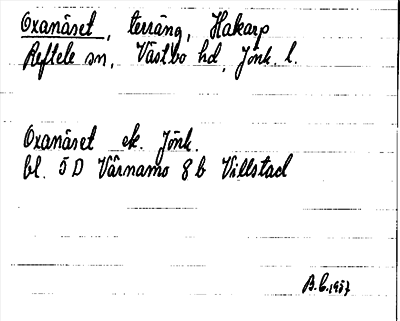 Oxanäset, terräng, Hakarp
Reftele sn, Västbo hd, Jönk. l.
Oxanäset ek. Jönk.
bl. 5 D Värnamo 8 b Villstad
B.C. 1957